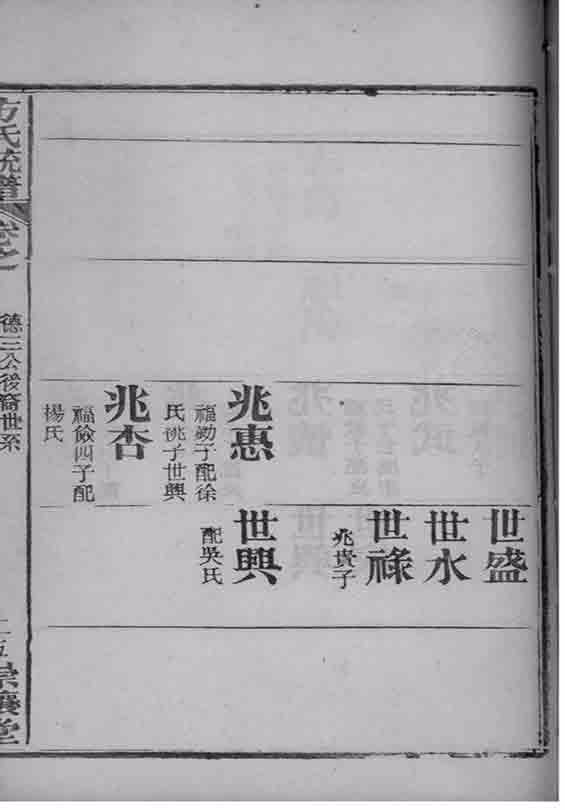 世盛
世水
世祿
兆貴子
兆惠
福勷子配徐
氏祧子世興
世興
配吳氏
兆杏
福儉四子配
楊氏
方氏統譜
卷之一
德三公後裔世系
二五
崇讓堂